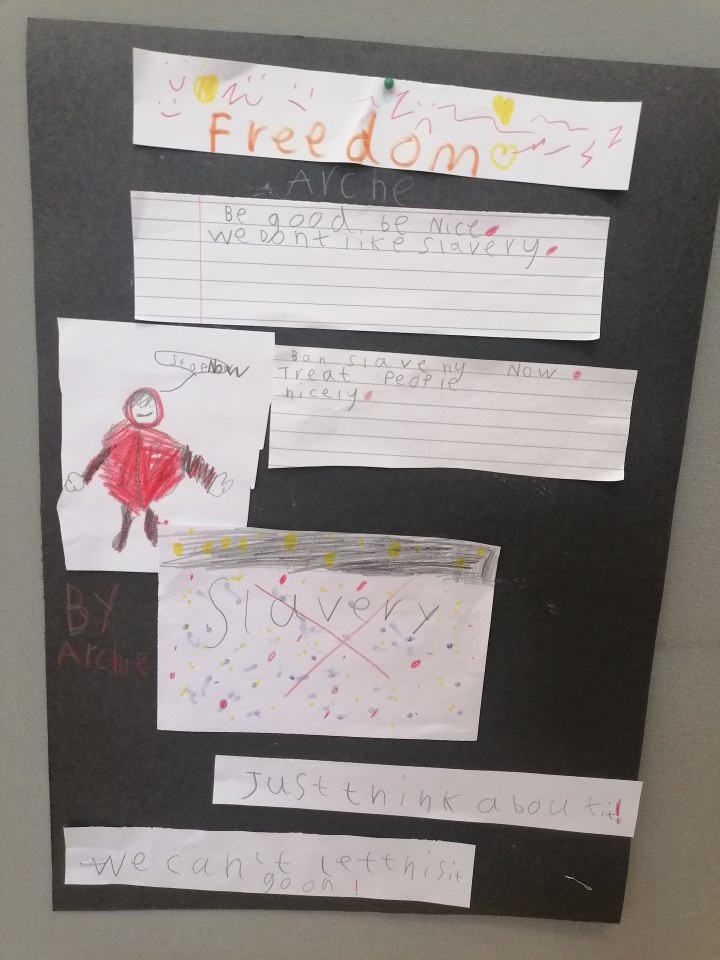 Freedom
Arche
Be good be Nice.
we Dont like slavery.
Stop Now
Ban slaveny Now.
Treat people
nicely.
Slavery
BY
Archie
Just think about it!
We can't let this it
go on!